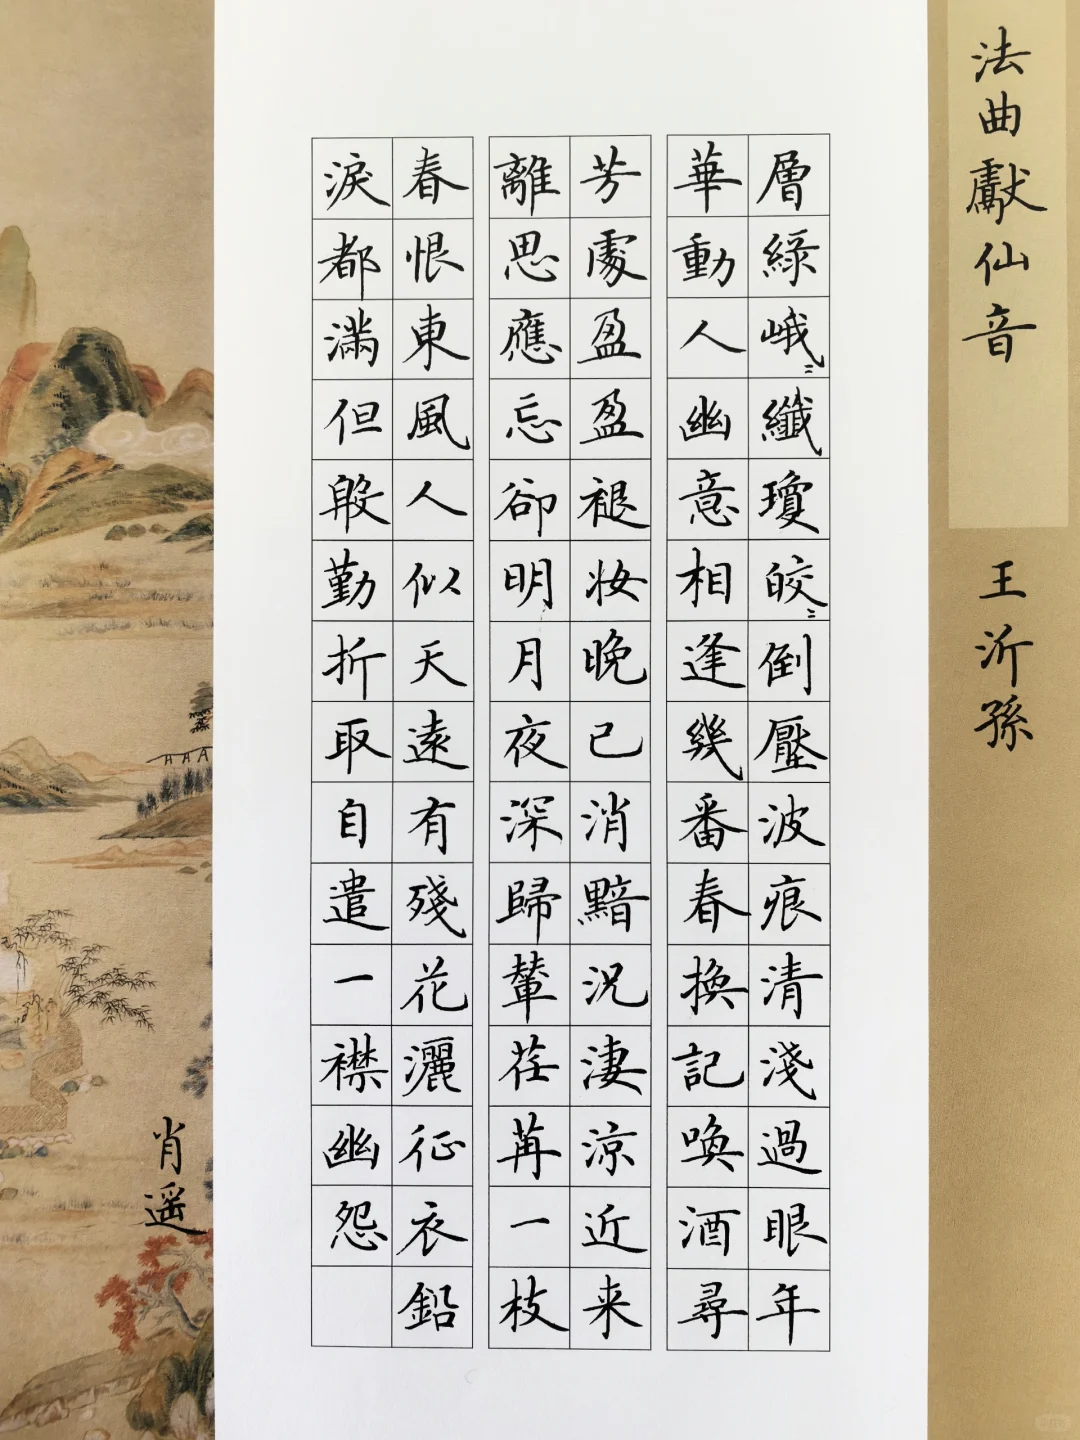 法曲獻仙音
王沂孫
層綠峨〻纖瓊皎〻倒壓波痕清淺過眼年
華動人幽意相逢幾番春換記喚酒尋
芳處盈盈褪妆晚已消黯況淒涼近来
離思應忘卻明月夜深歸輦荏苒一枝
春恨東風人似天遠有殘花灑征衣鉛
淚都滿但殷勤折取自遣一襟幽怨
肖遥